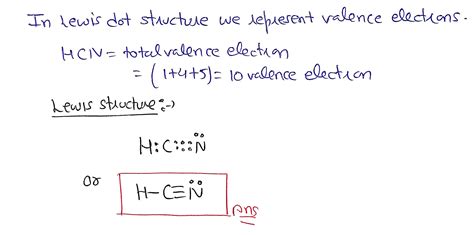 In Lewis dot structure we represent valence electrons.
HCN = total valence electron
= (1+4+5) = 10 valence electron
Lewis structure :→
H:C:::N̈
or
H–C≡N̈
Ans